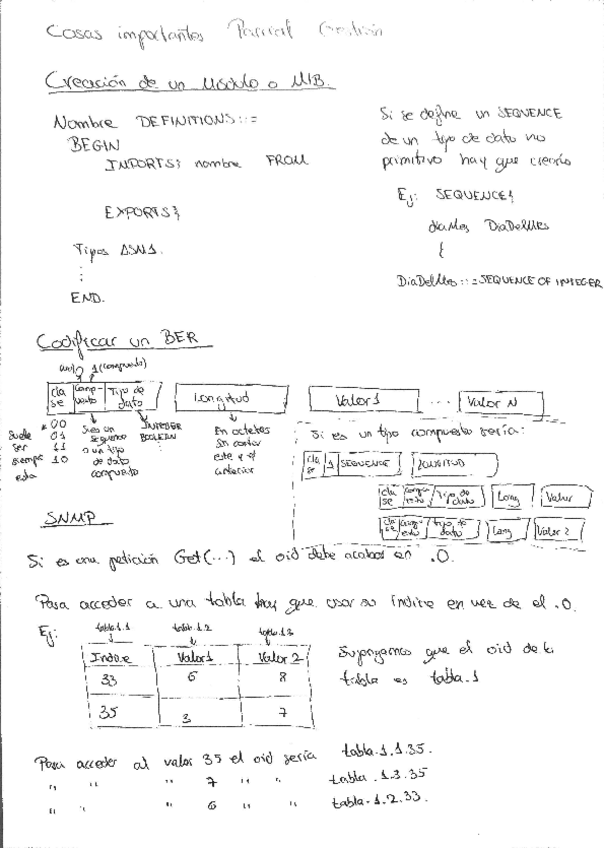 Cosas importantes Parcial Gestión
Creación de un Módulo o MIB.
Nombre DEFINITIONS::=
BEGIN
IMPORTS{ nombre FROM
EXPORTS}
Tipos ASN1.
:
END.
Si se define un SEQUENCE
de un tipo de dato no
primitivo hay que crearlo
Ej: SEQUENCE{
diaMes DiaDelMes
{
DiaDelMes::=SEQUENCE OF INTEGER
Codificar un BER
1 (compuesto)
cla se
compuesto
Tipo de dato
Longitud
Valor 1
...
Valor N
Suele ser siempre esta
* 00
01
11
10
Si es un sequence o un tipo de dato compuesto
INTEGER
BOOLEAN
:
En octetos sin contar este y el anterior
Si es un tipo compuesto sería:
cla se
1
SEQUENCE
LONGITUD
cla se
compuesto
Tipo de dato
Long
Valor
cla se
compuesto
tipo de dato
Long
Valor 2
SNMP
Si es una petición Get(...) el oid debe acabar en .0.
Para acceder a una tabla hay que usar su índice en vez de el .0.
Ej:
tabla.1.1
tabla.1.2
tabla.1.3
Indice Valor1 Valor 2
33 6 8
35 3 7
Supongamos que el oid de la
tabla es tabla.1
Para acceder al valor 35 el oid sería tabla.1.1.35.
" " " 7 " " tabla.1.3.35
" " " 6 " " tabla.1.2.33.